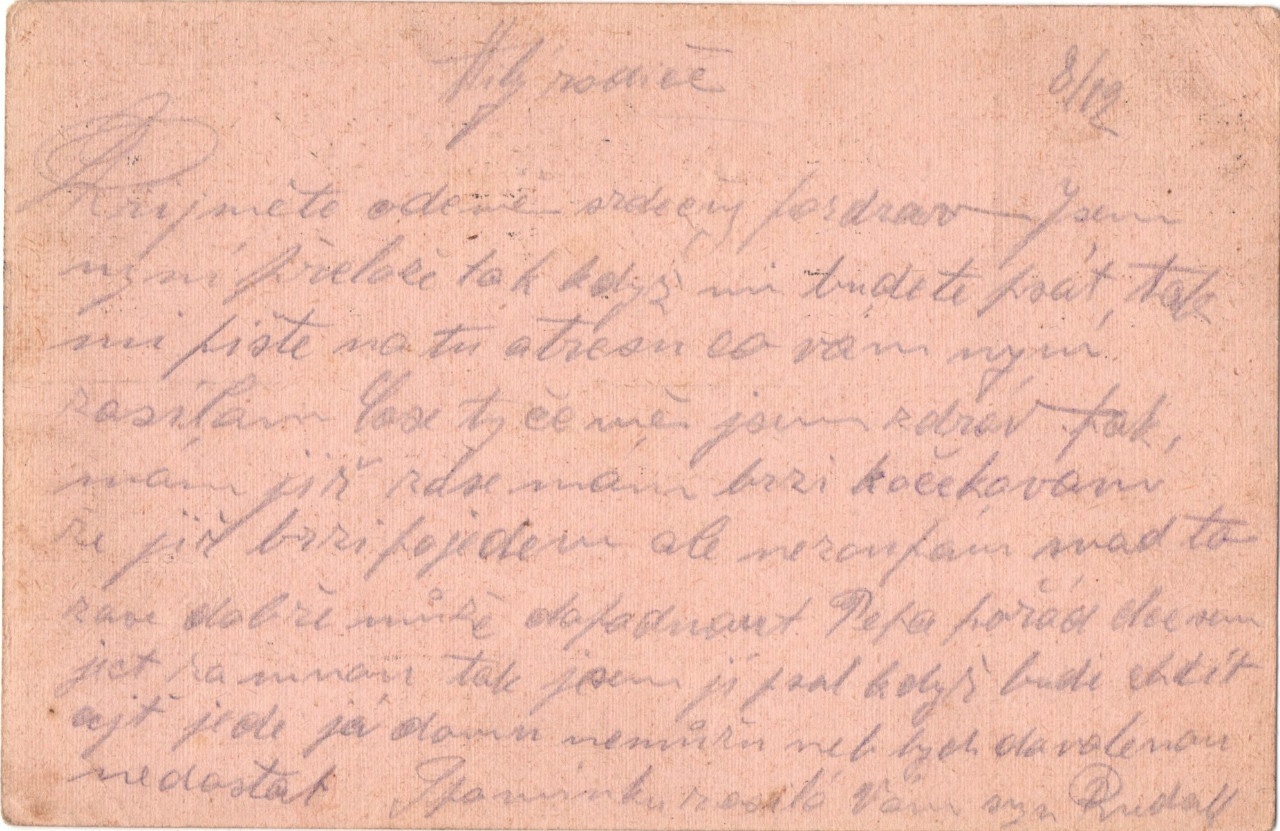 Milý rodiče 8/12
Přijměte odemě srdečný pozdrav Jsem
nyní přelože tak když mi budete psát, tak
mi pište na tu atresu co vám nyní
zasílám Co se tyče mě jsem zdráv tak,
mám již zdse mám brzi
že již brzi pojedem ale nezoufám snad to
zase dobře může dopadnout Pepa pořád chce sem
ject za mnou tak jsem jí psal když bude chtít
ajť jede já domu nemůžu neb bych dovolenou
nedostal Spomínku zasílá Vám syn Rudolf